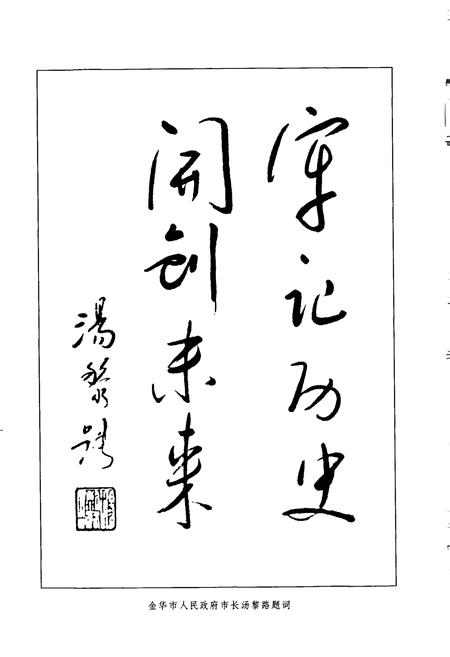 牢记历史
開創未来
湯黎路
金华市人民政府市长汤黎路题词